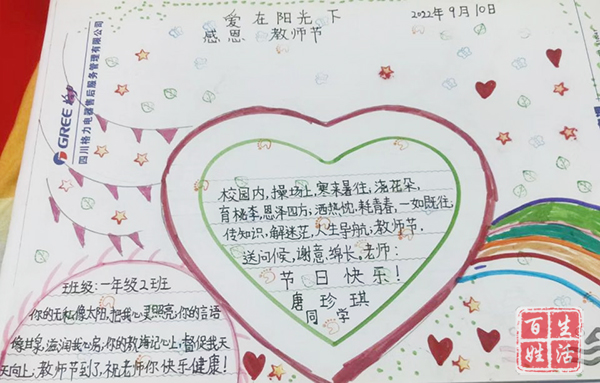 爱在阳光下
2022年9月10日
感恩 教师节
GREE 格力
四川格力电器售后服务管理有限公司
校园内,操场上,寒来暑往,浇花朵,
育桃李,恩泽四方,洒热忱,耗青春,一如既往,
传知识,解迷茫,人生导航,教师节,
送问候,谢意,绵长,老师:
节日快乐!
唐珍琪
同学
班级:一年级2班
你的无私像太阳,把我心灵照亮,你的言语
像甘泉,滋润我心房,你的教诲记心上,督促我天
天向上,教师节到了,祝老师你快乐健康!
百姓生活